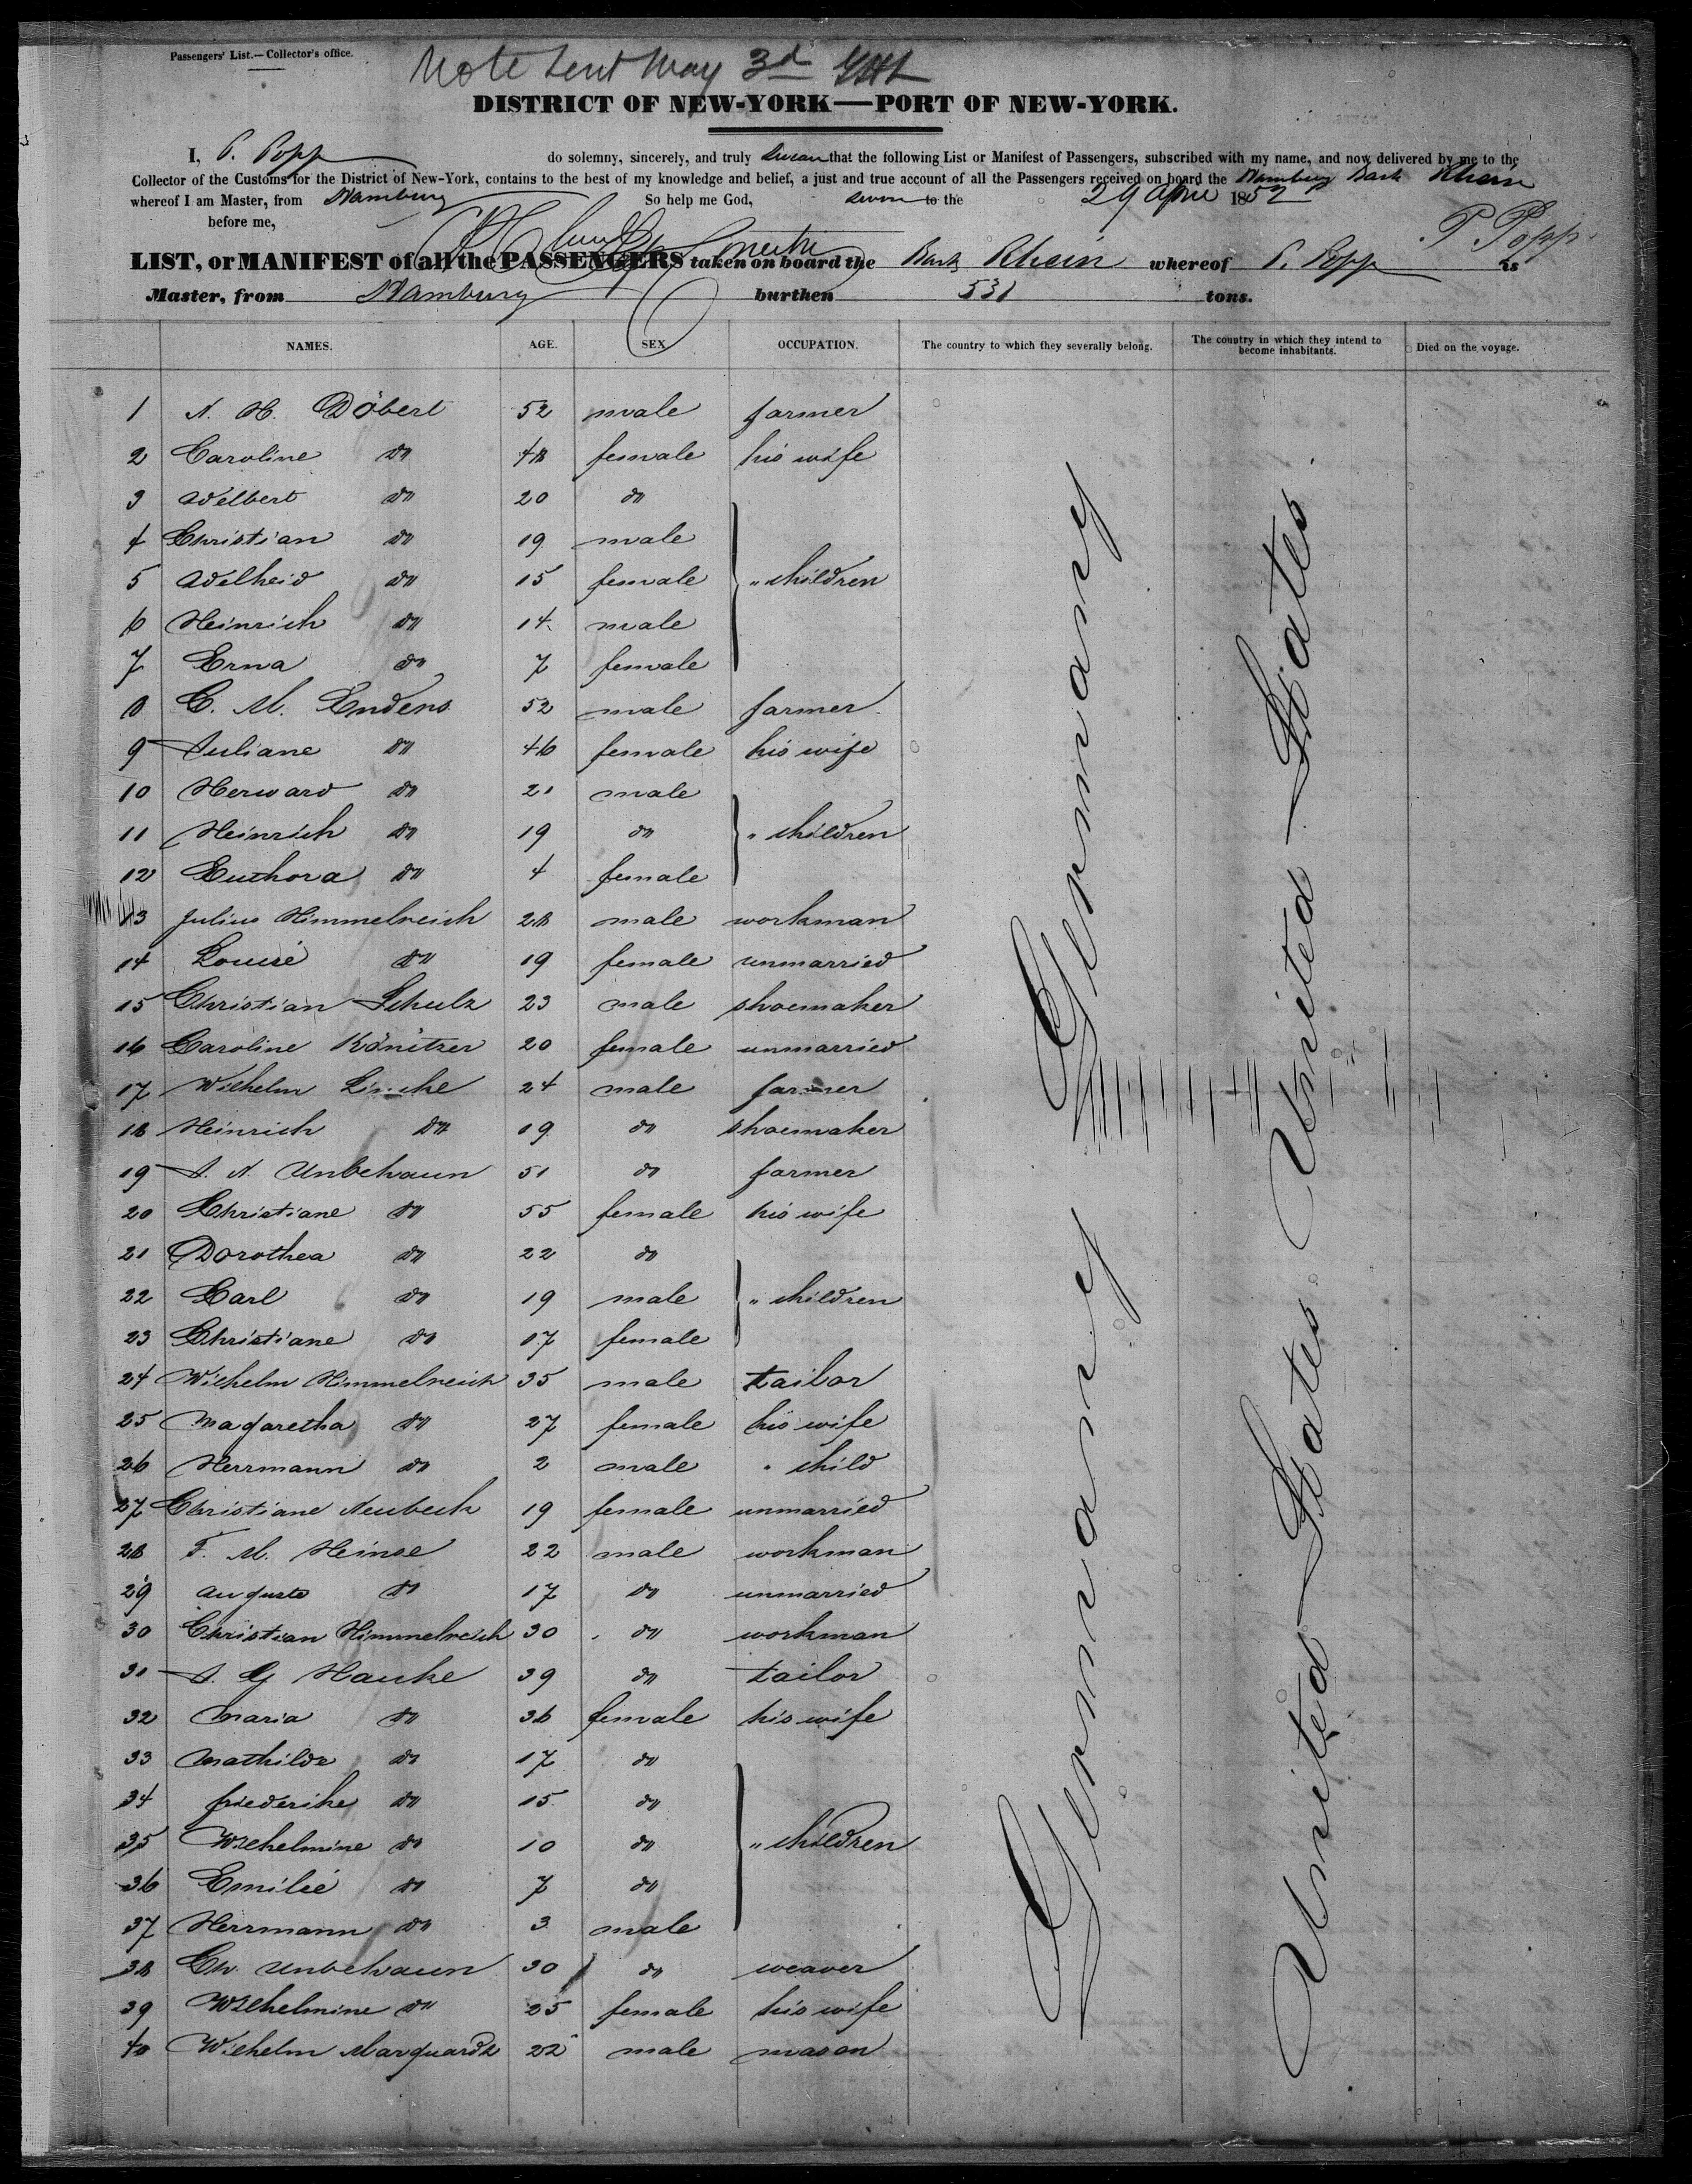 Passengers' List.—Collector's office.
Note Sent May 3d
DISTRICT OF NEW-YORK—PORT OF NEW-YORK.
I, P. Popp do solemny, sincerely, and truly swear that the following List or Manifest of Passengers, subscribed with my name, and now delivered by me to the
Collector of the Customs for the District of New-York, contains to the best of my knowledge and belief, a just and true account of all the Passengers received on board the Hamburg Bark Rhein
whereof I am Master, from Hamburg So help me God, sworn to the 29 April 1852
before me, P Popp
LIST, or MANIFEST of all the PASSENGERS taken on board the Bark Rhein whereof P. Popp is
Master, from Hamburg burthen 531 tons.
NAMES. AGE. SEX OCCUPATION. The country to which they severally belong. The country in which they intend to become inhabitants. Died on the voyage.
1 N. H. Döbert 52 male farmer
2 Caroline do 48 female his wife
3 Adelbert do 20 do
4 Christian do 19 male
5 Adelheid do 15 female " children
6 Heinrich do 14 male
7 Erna do 7 female
8 C. M. Enders 52 male farmer
9 Juliane do 46 female his wife
10 Herward do 21 male
11 Heinrich do 19 do " children
12 Euthora do 4 female
13 Julius Himmelreich 28 male workman
14 Louise do 19 female unmarried
15 Christian Schulz 23 male shoemaker
16 Caroline Könitzer 20 female unmarried
17 Wilhelm Lincke 24 male farmer
18 Heinrich do 19 do shoemaker
19 J. N. Unbehaun 51 do farmer
20 Christiane do 55 female his wife
21 Dorothea do 22 do
22 Carl do 19 male " children
23 Christiane do 17 female
24 Wilhelm Himmelreich 35 male tailor
25 Magaretha do 27 female his wife
26 Herrmann do 2 male " child
27 Christiane Neubeck 19 female unmarried
28 F. M. Heinse 22 male workman
29 Auguste do 17 do unmarried
30 Christian Himmelreich 30 do workman
31 J. G Hauke 39 do tailor
32 Maria do 36 female his wife
33 Mathilde do 17 do
34 friederike do 15 do
35 Wilhelmine do 10 do " children
36 Emilie do 7 do
37 Herrmann do 3 male
38 Chr. Unbehaun 30 do weaver
39 Wilhelmine do 25 female his wife
40 Wilhelm Marquardt 22 male mason
Germany Germany
United States United States